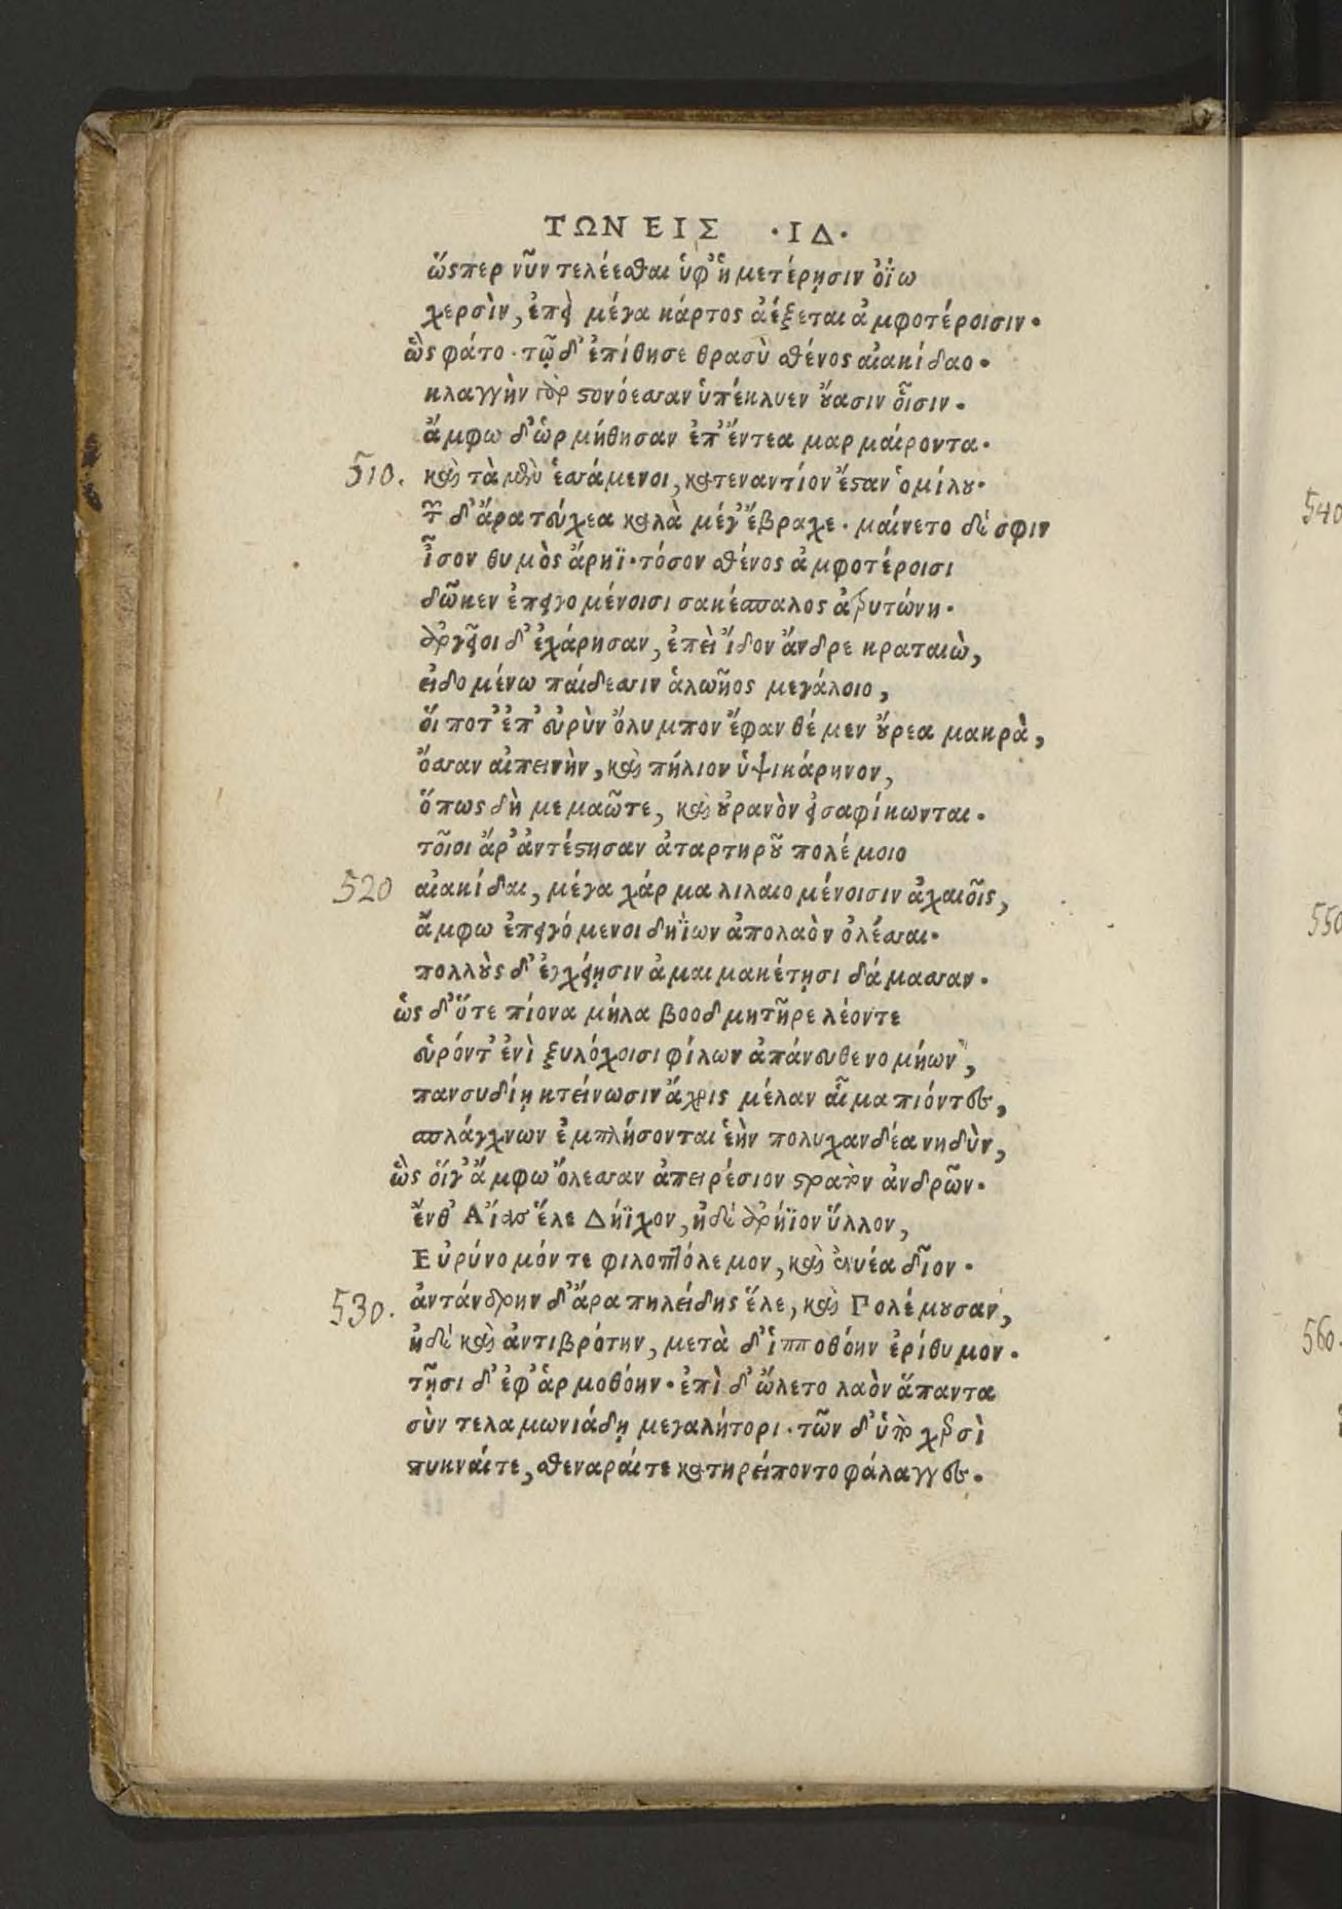 ΤΩΝ ΕΙΣ ·ΙΔ·
ὥσπερ νῦν τελέεσθαι ὑφ' ἡμετέρῃσιν ὀΐω
χερσὶν, ἐπεὶ μέγα κάρτος ἀέξεται ἀμφοτέροισιν·
ὣς φάτο· τῷ δ' ἐπίθησε θρασὺ σθένος αἰακίδαο·
κλαγγὴν γὰρ στονόεσσαν ὑπέκλυεν οὔασιν οἷσιν·
ἄμφω δ' ὡρμήθησαν ἐπ' ἔντεα μαρμαίροντα·
510. καὶ τὰ μὲν ἑσσάμενοι, κατεναντίον ἔσταν ὁμίλου·
τῶν δ' ἄρα τεύχεα καλὰ μέγ' ἔβραχε· μαίνετο δέ σφιν
ἶσον θυμὸς ἄρηϊ· τόσον σθένος ἀμφοτέροισι
δῶκεν ἐπειγομένοισι σακέσπαλος ἀτρυτώνη·
ἀργεῖοι δ' ἐχάρησαν, ἐπεὶ ἴδον ἄνδρε κραταιὼ,
εἰδομένω παίδεσσιν ἀλωῆος μεγάλοιο,
οἵ ποτ' ἐπ' εὐρὺν ὄλυμπον ἔφαν θέμεν οὔρεα μακρὰ,
ὄσσαν αἰπεινὴν, καὶ πήλιον ὑψικάρηνον,
ὅπως δὴ μεμαῶτε, καὶ οὐρανὸν εἰσαφίκωνται·
τοῖοι ἄρ' ἀντέστησαν ἀταρτηροῦ πολέμοιο
520 αἰακίδαι, μέγα χάρμα λιλαιομένοισιν ἀχαιοῖς,
ἄμφω ἐπειγόμενοι δηΐων ἀπολαὸν ὀλέσσαι·
πολλοὺς δ' ἐγχείῃσιν ἀμαιμακέτῃσι δάμασσαν·
ὡς δ' ὅτε πίονα μῆλα βοοδμητῆρε λέοντε
εὑρόντ' ἐνὶ ξυλόχοισι φίλων ἀπάνευθε νομήων,
πανσυδίῃ κτείνωσιν ἄχρις μέλαν αἷμα πιόντες,
σπλάγχνων ἐμπλήσονται ἑὴν πολυχανδέα νηδὺν,
ὣς οἵγ' ἄμφω ὄλεσσαν ἀπειρέσιον στρατὸν ἀνδρῶν·
ἔνθ' Αἴας ἕλε Δήϊχον, ἠδὲ ἀρήϊον ὕλλον,
Εὐρύνομόν τε φιλοπτόλεμον, καὶ ἐνυέα δῖον·
530. ἀντάνδρην δ' ἄρα πηλείδης ἕλε, καὶ Πολέμουσαν,
ἠδὲ καὶ ἀντιβρότην, μετὰ δ' ἱπποθόην ἐρίθυμον·
τῇσι δ' ἐφ' ἁρμοθόην· ἐπὶ δ' ὤλετο λαὸν ἅπαντα
σὺν τελαμωνιάδῃ μεγαλήτορι· τῶν δ' ὑπὸ χερσὶ
πυκναίτε, σθεναραίτε κατηρείποντο φάλαγγες·
540
550
560.